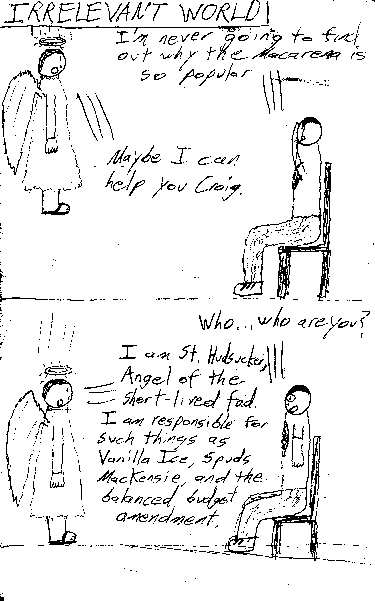 IRRELEVANT WORLD!
I'm never going to find
out why the Macarena is
so popular
Maybe I can
help you Craig.
Who...who are you?
I am St. Hudsucker,
Angel of the
short-lived fad.
I am responsible for
such things as
Vanilla Ice, Spuds
MacKensie, and the
balanced budget
amendment.